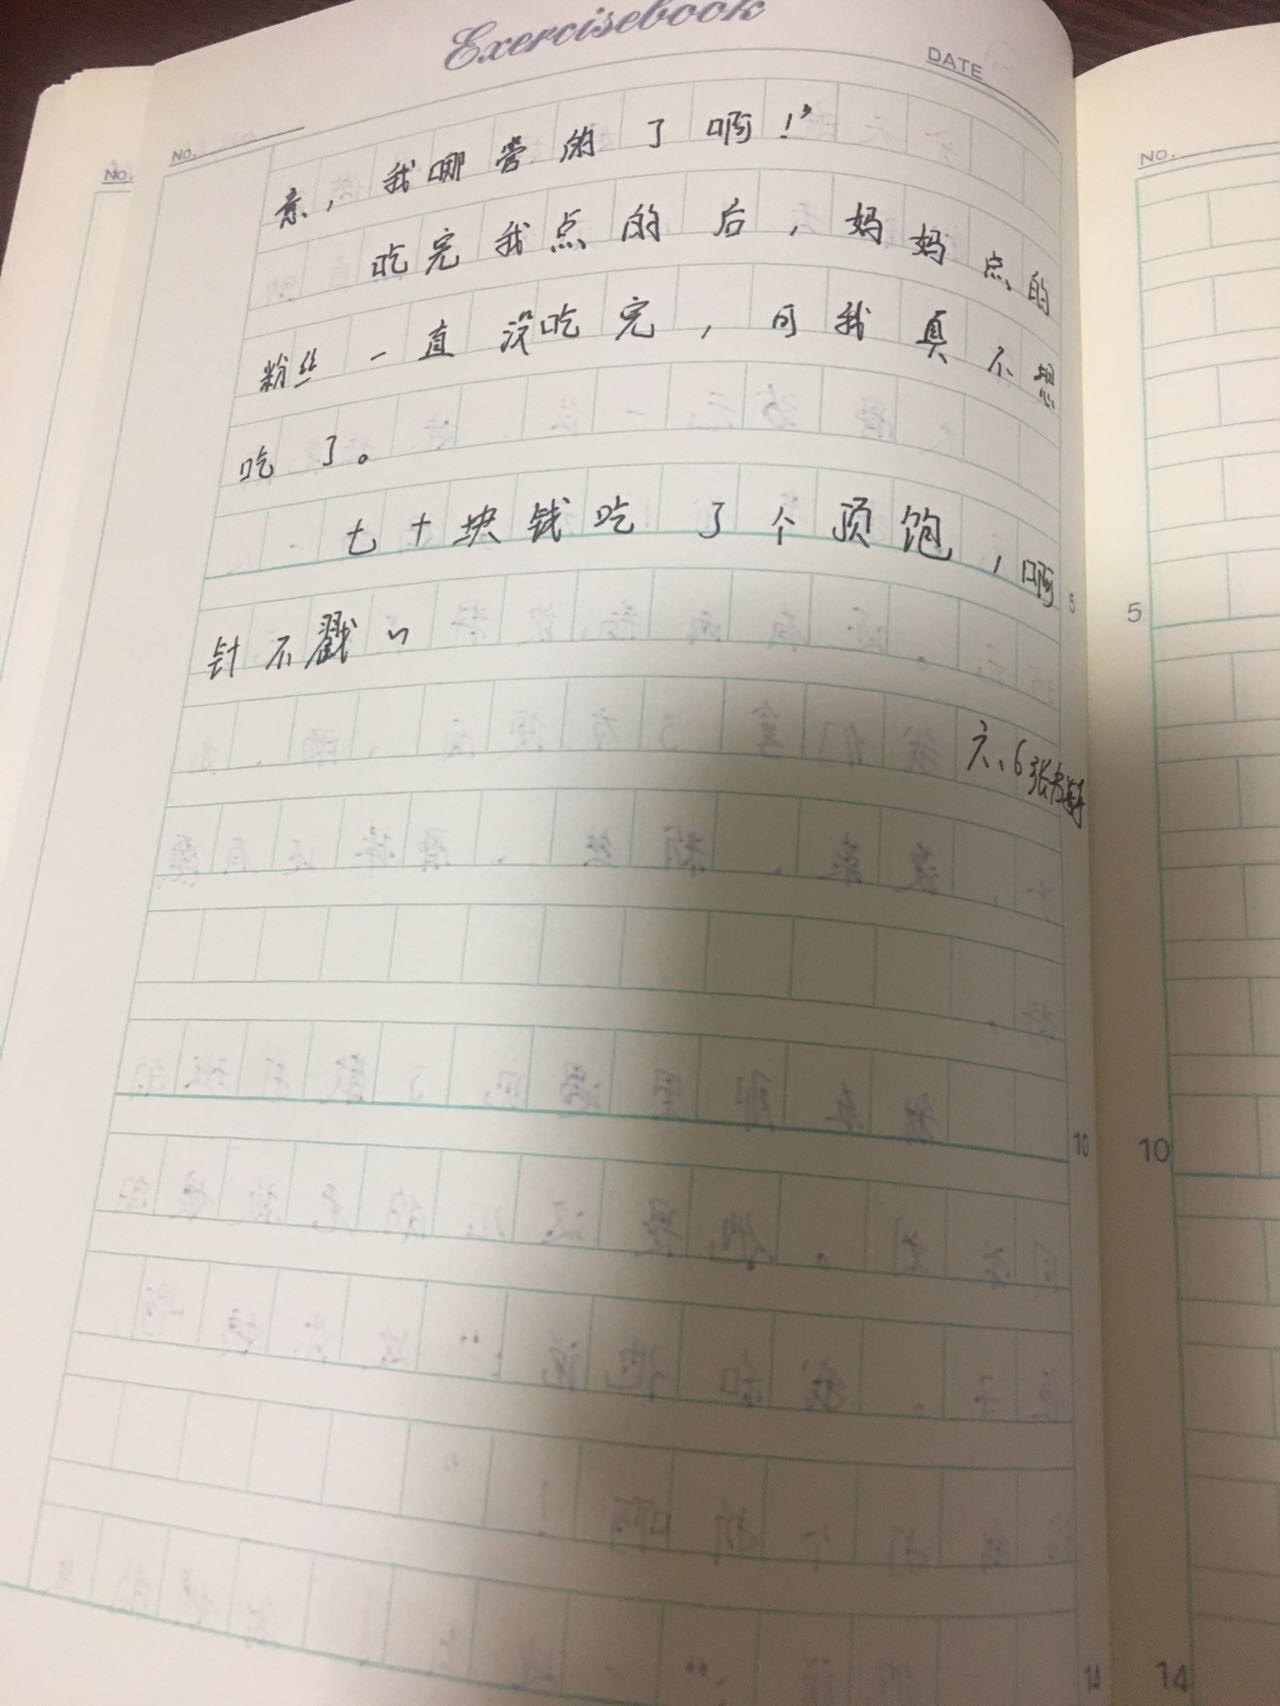 Exercisebook
DATE
NO.
NO.
NO.
意，我哪管的了啊！”
吃完我点的后，妈妈点的
粉丝一直没吃完，可我真不想
吃了。
七十块钱吃了个顶饱，啊
针不戳”
六、6张
5
10
14
5
10
14